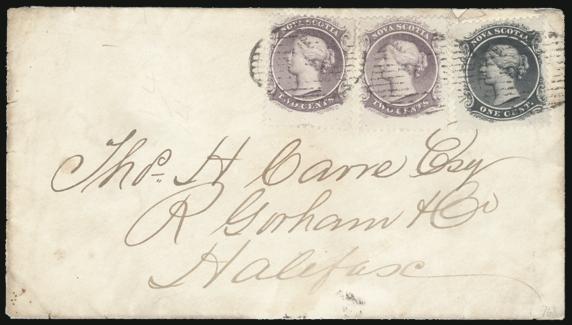 NOVA SCOTIA NOVA SCOTIA NOVA SCOTIA
TWO CENTS TWO CENTS ONE CENT.
Thos. H Carre Esq
R Gorham & Co
Halifax